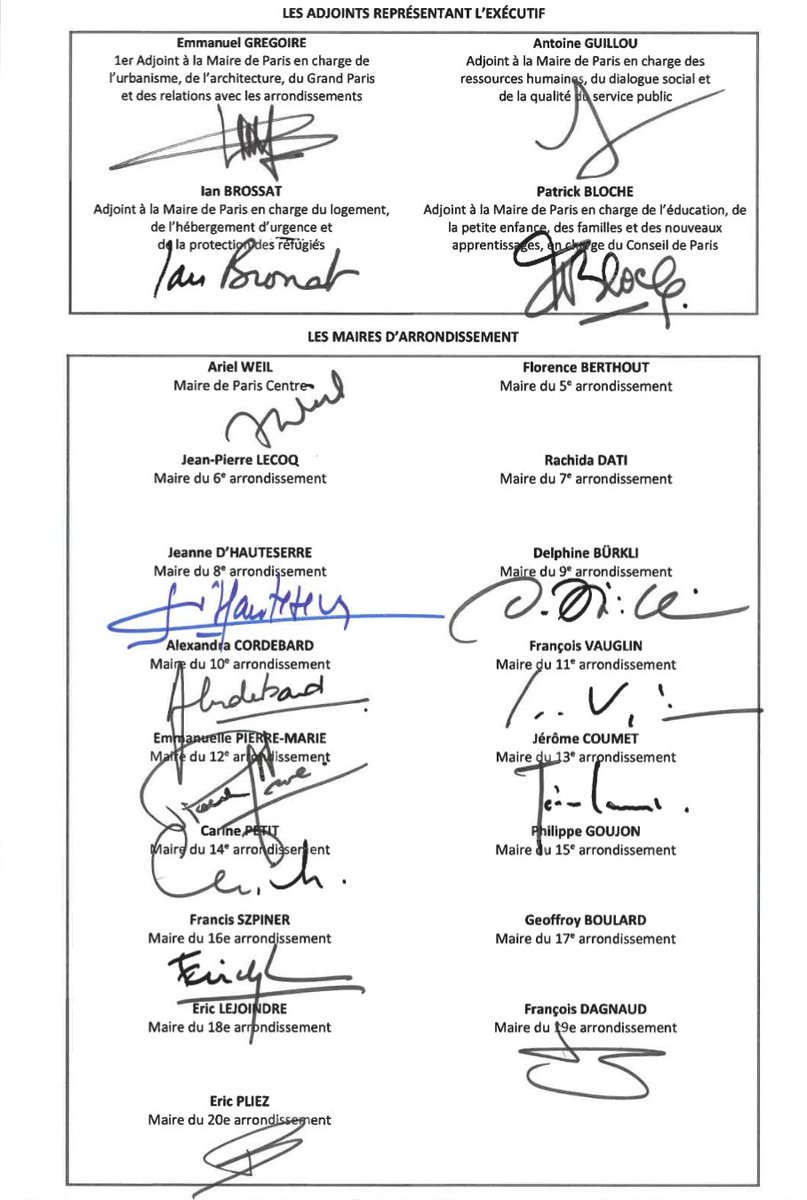 LES ADJOINTS REPRÉSENTANT L'EXÉCUTIF
Emmanuel GREGOIRE
1er Adjoint à la Maire de Paris en charge de
l'urbanisme, de l'architecture, du Grand Paris
et des relations avec les arrondissements
Antoine GUILLOU
Adjoint à la Maire de Paris en charge des
ressources humaines, du dialogue social et
de la qualité du service public
Ian BROSSAT
Adjoint à la Maire de Paris en charge du logement,
de l'hébergement d'urgence et
de la protection des réfugiés
Ian Brossat
Patrick BLOCHE
Adjoint à la Maire de Paris en charge de l'éducation, de
la petite enfance, des familles et des nouveaux
apprentissages, en charge du Conseil de Paris
PBloche
LES MAIRES D'ARRONDISSEMENT
Ariel WEIL
Maire de Paris Centre
Florence BERTHOUT
Maire du 5e arrondissement
Jean-Pierre LECOQ
Maire du 6e arrondissement
Rachida DATI
Maire du 7e arrondissement
Jeanne D'HAUTESERRE
Maire du 8e arrondissement
Delphine BÜRKLI
Maire du 9e arrondissement
Alexandra CORDEBARD
Maire du 10e arrondissement
François VAUGLIN
Maire du 11e arrondissement
Emmanuelle PIERRE-MARIE
Maire du 12e arrondissement
Jérôme COUMET
Maire du 13e arrondissement
Carine PETIT
Maire du 14e arrondissement
Philippe GOUJON
Maire du 15e arrondissement
Francis SZPINER
Maire du 16e arrondissement
Geoffroy BOULARD
Maire du 17e arrondissement
Eric LEJOINDRE
Maire du 18e arrondissement
François DAGNAUD
Maire du 19e arrondissement
Eric PLIEZ
Maire du 20e arrondissement